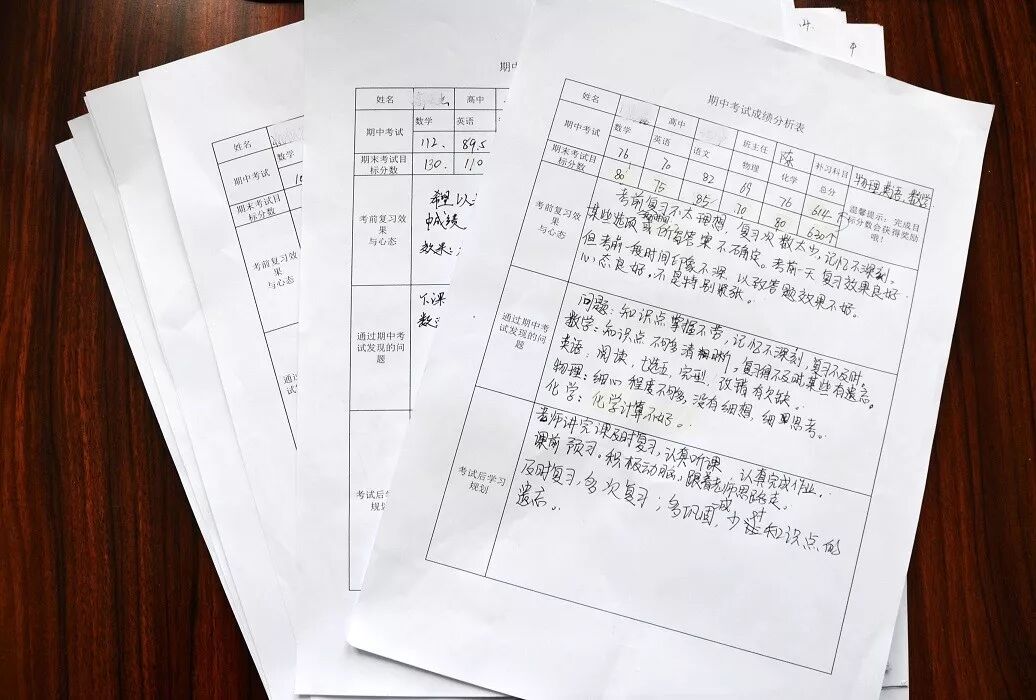 期中考试成绩分析表
姓名 高中 班主任 陈 补习科目 物理英语、数学
期中考试 数学 英语 语文 物理 化学 总分
76 70 82 69 76 614
期末考试目标分数 80 75 85 70 80 620
温馨提示：完成目标分数会获得奖励哦！
考前复习效果与心态
考前复习不太理想，复习次数太少，记忆不深刻。
答案不确定。考前一天复习效果良好
但考前一段时间印象不深，以致答题效果不好。
心态良好，不是特别紧张。
通过期中考试发现的问题
问题：知识点掌握不牢，记忆不深刻，复习不及时。
数学：知识点不够清晰，复习得不及时某些有遗忘。
英语，阅读，七选五，完型，改错有欠缺。
物理：细心程度不够，没有细想，细思考。
化学：化学计算不好。
考试后学习规划
老师讲完课及时复习，认真听课，认真完成作业，
课前预习。积极动脑，跟着老师思路走。
及时复习，多次复习；多巩固，减少对知识点的
遗忘。
期中
姓名 高中
期中考试 数学 英语
112. 89.5
期末考试目标分数 130. 110
考前复习效果与心态
希望以
成绩
效果
通过期中考试发现的问题
下课
数
考试后学习规划
姓名
期中考试 数学
期末考试目标分数
考前复习效果与心态
通过